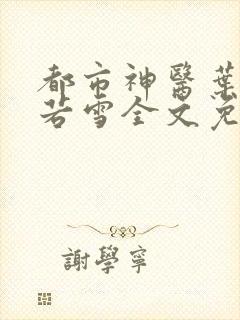 都市神醫葉
若雪全文免
謝學寧